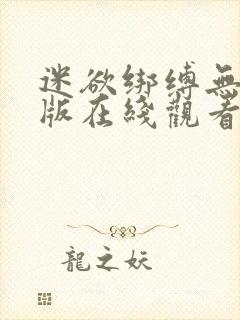 迷欲绑缚無
版在綫觀看
龍之妖